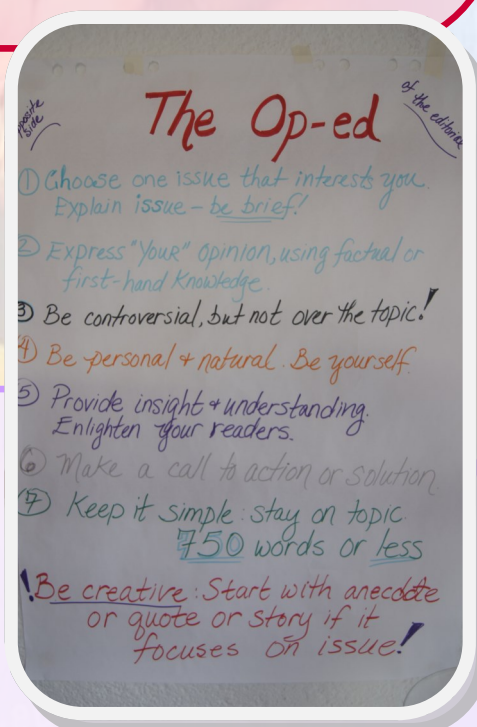 opposite
side
of the editorial
The Op-ed
① Choose one issue that interests you.
Explain issue - be brief!
② Express "YouR" opinion, using factual or
first-hand knowledge.
③ Be controversial, but not over the topic!
④ Be personal + natural. Be yourself.
⑤ Provide insight + understanding.
Enlighten your readers.
⑥ Make a call to action or solution
⑦ Keep it simple: stay on topic.
750 words or less
!Be creative: Start with anecdote
or quote or story if it
focuses on issue!